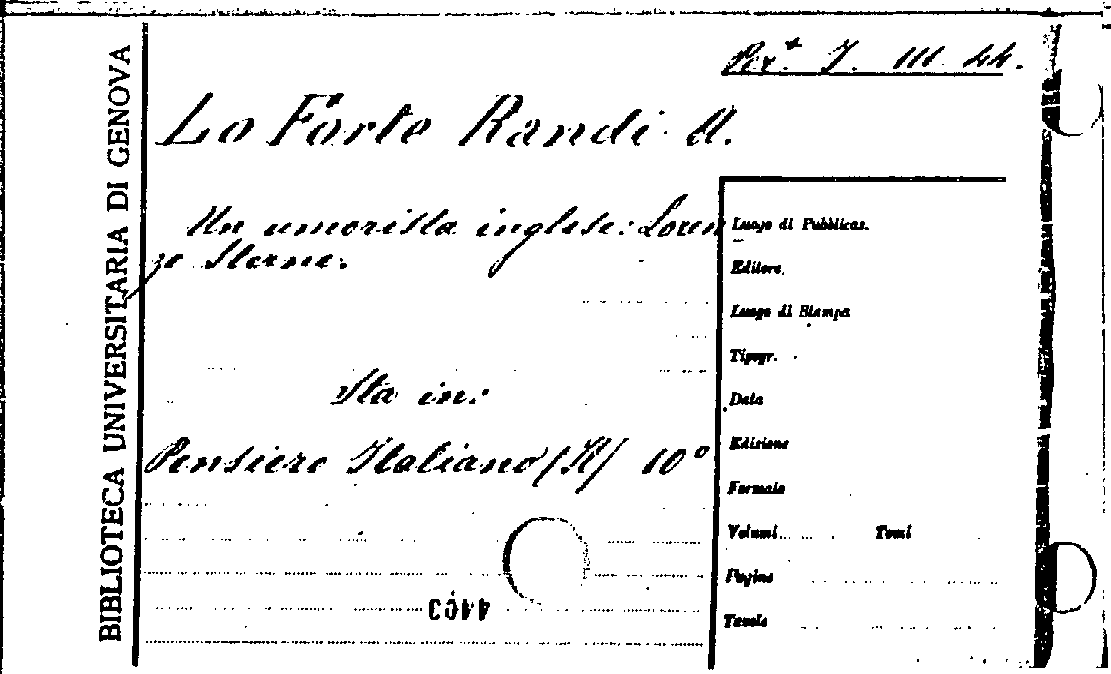 BIBLIOTECA UNIVERSITARIA DI GENOVA
Per.ª J. III. 44.
Lo Forte Randi A.
Un umorista inglese: Loren
zo Sterne.
Sta in:
Pensiero Italiano (Il) 10°
Luogo di Pubblicaz.
Editore
Luogo di Stampa
Tipogr.
Data
Edizione
Formato
Volumi Tomi
Pagine
Tavole
4403